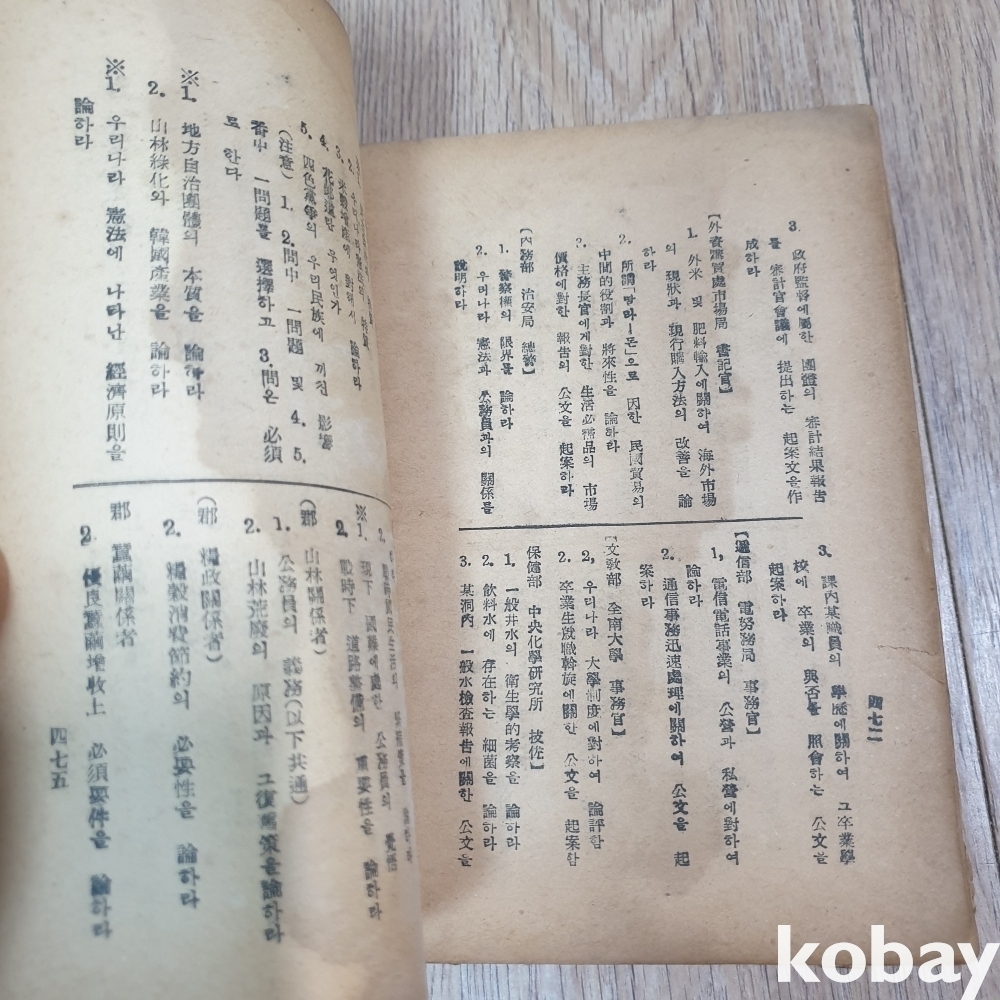 3. 政府監督에屬한 團體의 審計結果報告
를 審計官會議에 提出하는 起案文을作
成하라
【外資購買處市場局 書記官】
1. 外米 및 肥料輸入에關하여 海外市場
의 現狀과 現行購入方法의 改善을 論
하라
2. 所謂「땅라ー몬」으로 因한 民國貿易의
中間的役割과 將來性을 論하라
2. 主務長官에게對한 生活必需品의 市場
價格에對한 報告의 公文을 起案하라
【內務部 治安局 總警】
1. 警察權의 限界를 論하라
2. 우리나라 憲法과 公務員과의 關係를
說明하라
3. 課內某職員의 學歷에關하여 그卒業學
校에 卒業의 與否를 照會하는 公文을
起案하라
【遞信部 電務局 事務官】
1, 電信電話事業의 公營과 私營에對하여
論하라
2. 通信事務迅速處理에關하여 公文을 起
案하라
【文敎部 全南大學 事務官】
2, 우리나라 大學制度에對하여 論評함
2. 卒業生就職斡旋에關한 公文을 起案함
保健部 中央化學硏究所 技佐】
1, 一般井水의 衛生學的考察을 論하라
2. 飮料水에 存在하는 細菌을 論하라
3. 某洞內 一般水檢査報告에關한 公文을
四七二
5. 四色黨爭의 우리民族에 끼친 影響
(注意) 1. 2.問中 一問題 및 4. 5.
番中 一問題를 選擇하고 3.問은 必須
로 한다
※1. 地方自治團體의 本質을 論하라
2. 山林綠化와 韓國產業을 論하라
※1. 우리나라 憲法에 나타난 經濟原則을
論하라
※1. 現下 國難에處한 公務員의 覺悟
2. 戰時下 道路整備의 重要性을 論하라
(郡 山林關係者)
1. 公務員의 義務(以下共通)
2. 山林荒廢의 原因과 그復舊策을論하라
(郡 糧政關係者)
2. 糧穀消費節約의 必要性을 論하라
郡 蠶繭關係者
2 優良蠶繭增收上 必須要件을 論하라
四七五
kobay